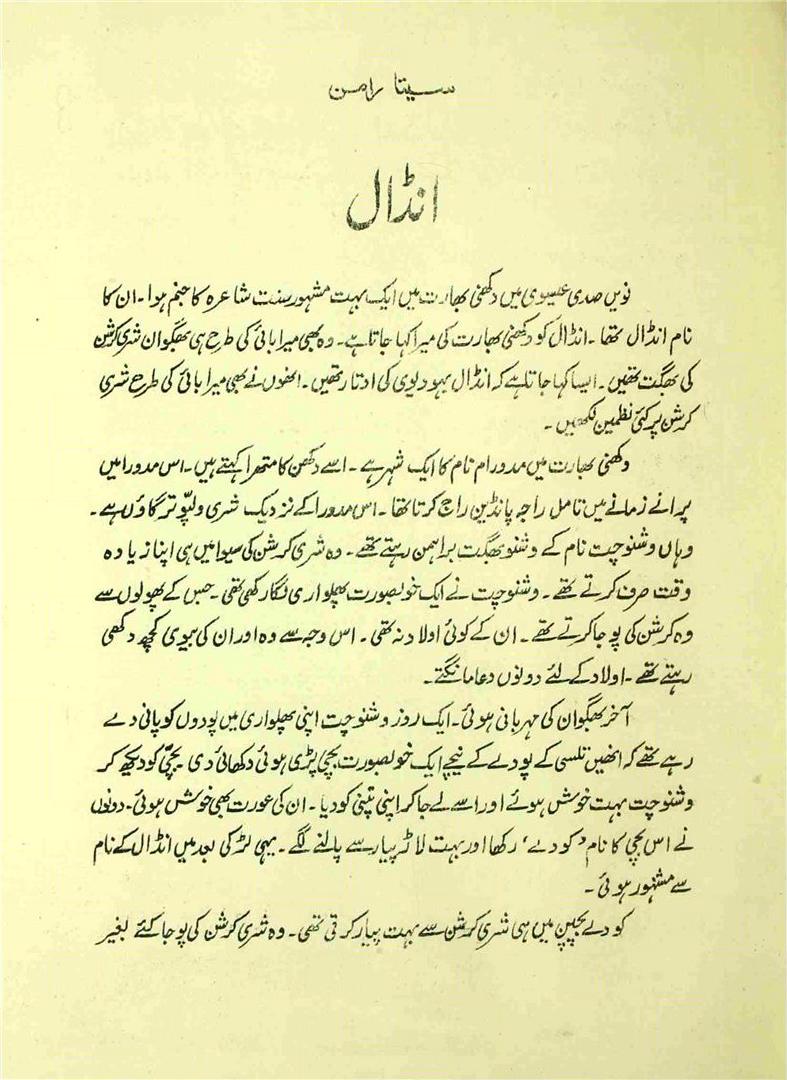 سیتا رامن
انڈال
نویں صدی عیسوی میں دکھنی بھارت میں ایک بہت مشہور سنت شاعرہ کا جنم ہوا۔ ان کا
نام انڈال تھا۔ انڈال کو دکھنی بھارت کی میرا کہا جاتا ہے۔ وہ بھی میرا بائی کی طرح ہی بھگوان شری کرشن
کی بھگت تھیں۔ ایسا کہا جاتا ہے کہ انڈال بہو دیوی کی اوتار تھیں۔ انھوں نے بھی میرا بائی کی طرح شری
کرشن پر کئی نظمیں لکھیں۔
دکھنی بھارت میں مدورام نام کا ایک شہر ہے۔ اسے دکھن کا متھرا کہتے ہیں۔ اس مدورا میں
پرانے زمانے میں تامل راجہ پانڈین راج کرتا تھا۔ اس مدورا کے نزدیک شری ولپوتر گاؤں ہے۔
وہاں وشنوچت نام کے وشنو بھگت براہمن رہتے تھے۔ وہ شری کرشن کی سیوا میں ہی اپنا زیادہ
وقت صرف کرتے تھے۔ وشنوچت نے ایک خوبصورت پھلواری لگا رکھی تھی۔ جس کے پھولوں سے
وہ کرشن کی پوجا کرتے تھے۔ ان کے کوئی اولاد نہ تھی۔ اس وجہ سے وہ اور ان کی بیوی کچھ دکھی
رہتے تھے۔ اولاد کے لئے دونوں دعا مانگتے۔
آخر بھگوان کی مہربانی ہوئی۔ ایک روز وشنوچت اپنی پھلواری میں پودوں کو پانی دے
رہے تھے کہ انھیں تلسی کے پودے کے نیچے ایک خوبصورت بچی پڑی ہوئی دکھائی دی بچی کو دیکھ کر
وشنوچت بہت خوش ہوئے اور اسے لے جا کر اپنی پتنی کو دیا۔ ان کی عورت بھی خوش ہوئی۔ دونوں
نے اس بچی کا نام 'کودے' رکھا اور بہت لاڑ پیار سے پالنے لگے۔ یہی لڑکی بعد میں انڈال کے نام
سے مشہور ہوئی۔
کودے بچپن میں ہی شری کرشن سے بہت پیار کرتی تھی۔ وہ شری کرشن کی پوجا کئے بغیر